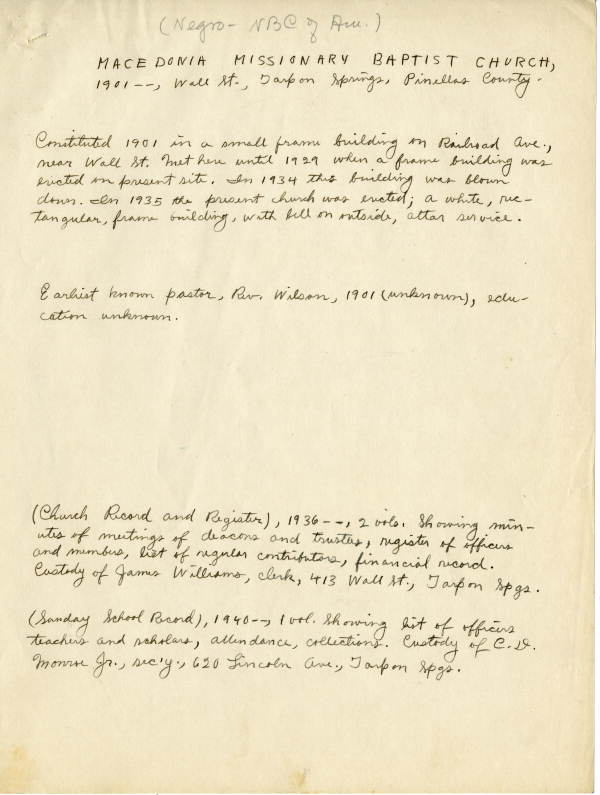 (Negro - NBC of Am.)
MACEDONIA MISSIONARY BAPTIST CHURCH,
1901 --, Wall St., Tarpon Springs, Pinellas County.
Constituted 1901 in a small frame building on Railroad Ave.,
near Wall St. Met here until 1929 when a frame building was
erected on present site. In 1934 this building was blown
down. In 1935 the present church was erected; a white, rec-
tangular, frame building, with bell on outside, altar service.
Earliest known pastor, Rev. Wilson, 1901 (unknown), edu-
cation unknown.
(Church Record and Register), 1936 --, 2 vols. Showing min-
utes of meetings of deacons and trustees, register of officers
and members, list of regular contributors, financial record.
Custody of James Williams, clerk, 413 Wall St., Tarpon Spgs.
(Sunday School Record), 1940 --, 1 vol. Showing list of officers
teachers and scholars, attendance, collections. Custody of C. D.
Monroe Jr., sec'y., 620 Lincoln Ave., Tarpon Spgs.